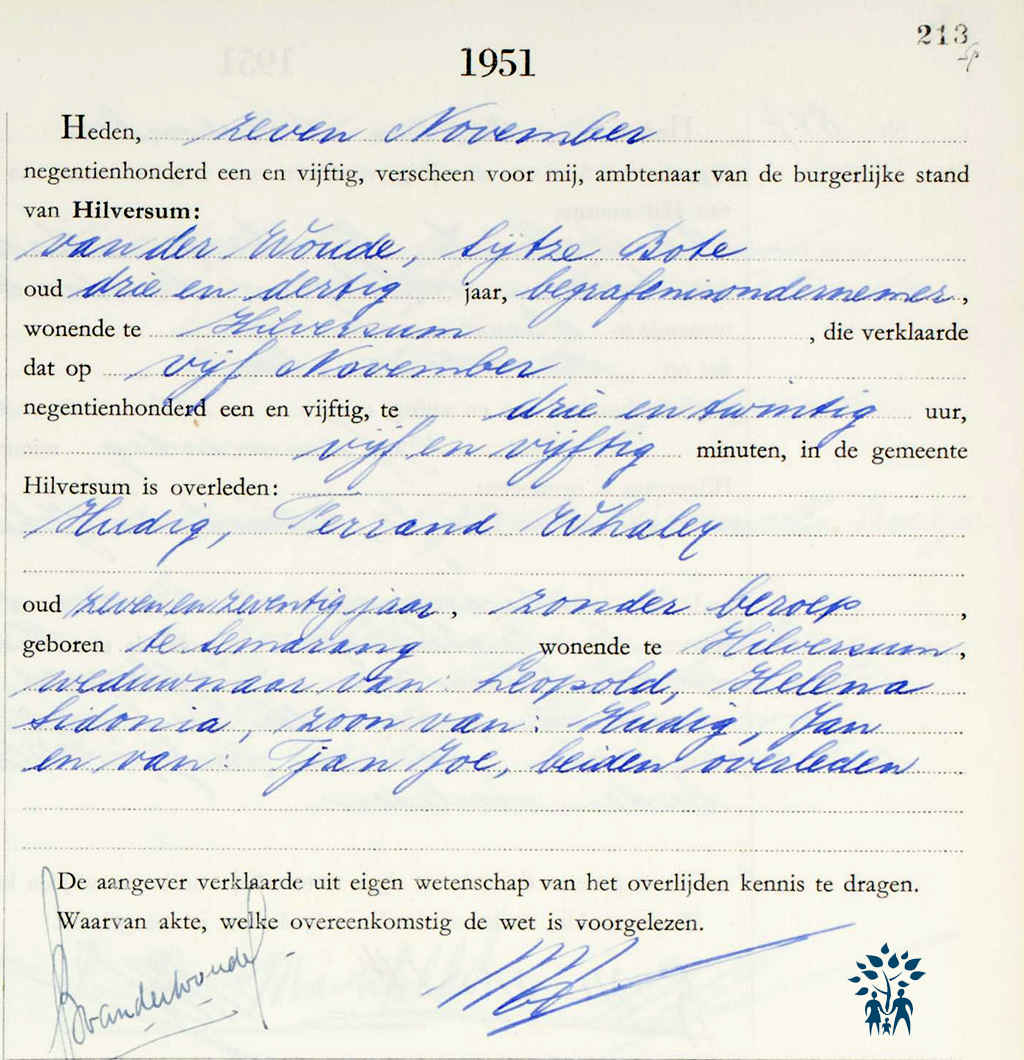 213
1951
Heden, zeven November
negentienhonderd een en vijftig, verscheen voor mij, ambtenaar van de burgerlijke stand
van Hilversum:
van der Woude, Sijtze Bote
oud drie en dertig jaar, begrafenisondernemer,
wonende te Hilversum, die verklaarde
dat op vijf November
negentienhonderd een en vijftig, te drie en twintig uur,
vijf en vijftig minuten, in de gemeente
Hilversum is overleden:
Hudig, Ferrand Whaley
oud zeven en zeventig jaar, zonder beroep,
geboren te Semarang wonende te Hilversum,
weduwnaar van: Leopold, Helena
Sidonia, zoon van: Hudig, Jan
en van: Tjan Joe, beiden overleden
De aangever verklaarde uit eigen wetenschap van het overlijden kennis te dragen.
Waarvan akte, welke overeenkomstig de wet is voorgelezen.
SBvanderWoude